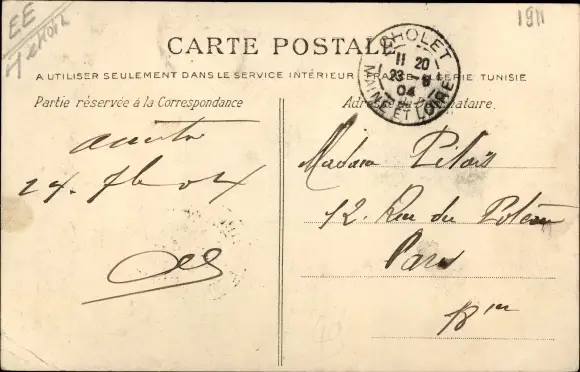 EE
1911
CARTE POSTALE
A UTILISER SEULEMENT DANS LE SERVICE INTÉRIEUR FRANCE-ALGERIE TUNISIE
CHOLET
11 20
23 -8
04
MAINE ET LOIRE
Partie réservée à la Correspondance
Adresse du Destinataire.
Madame
12. Rue du Poteau
Paris